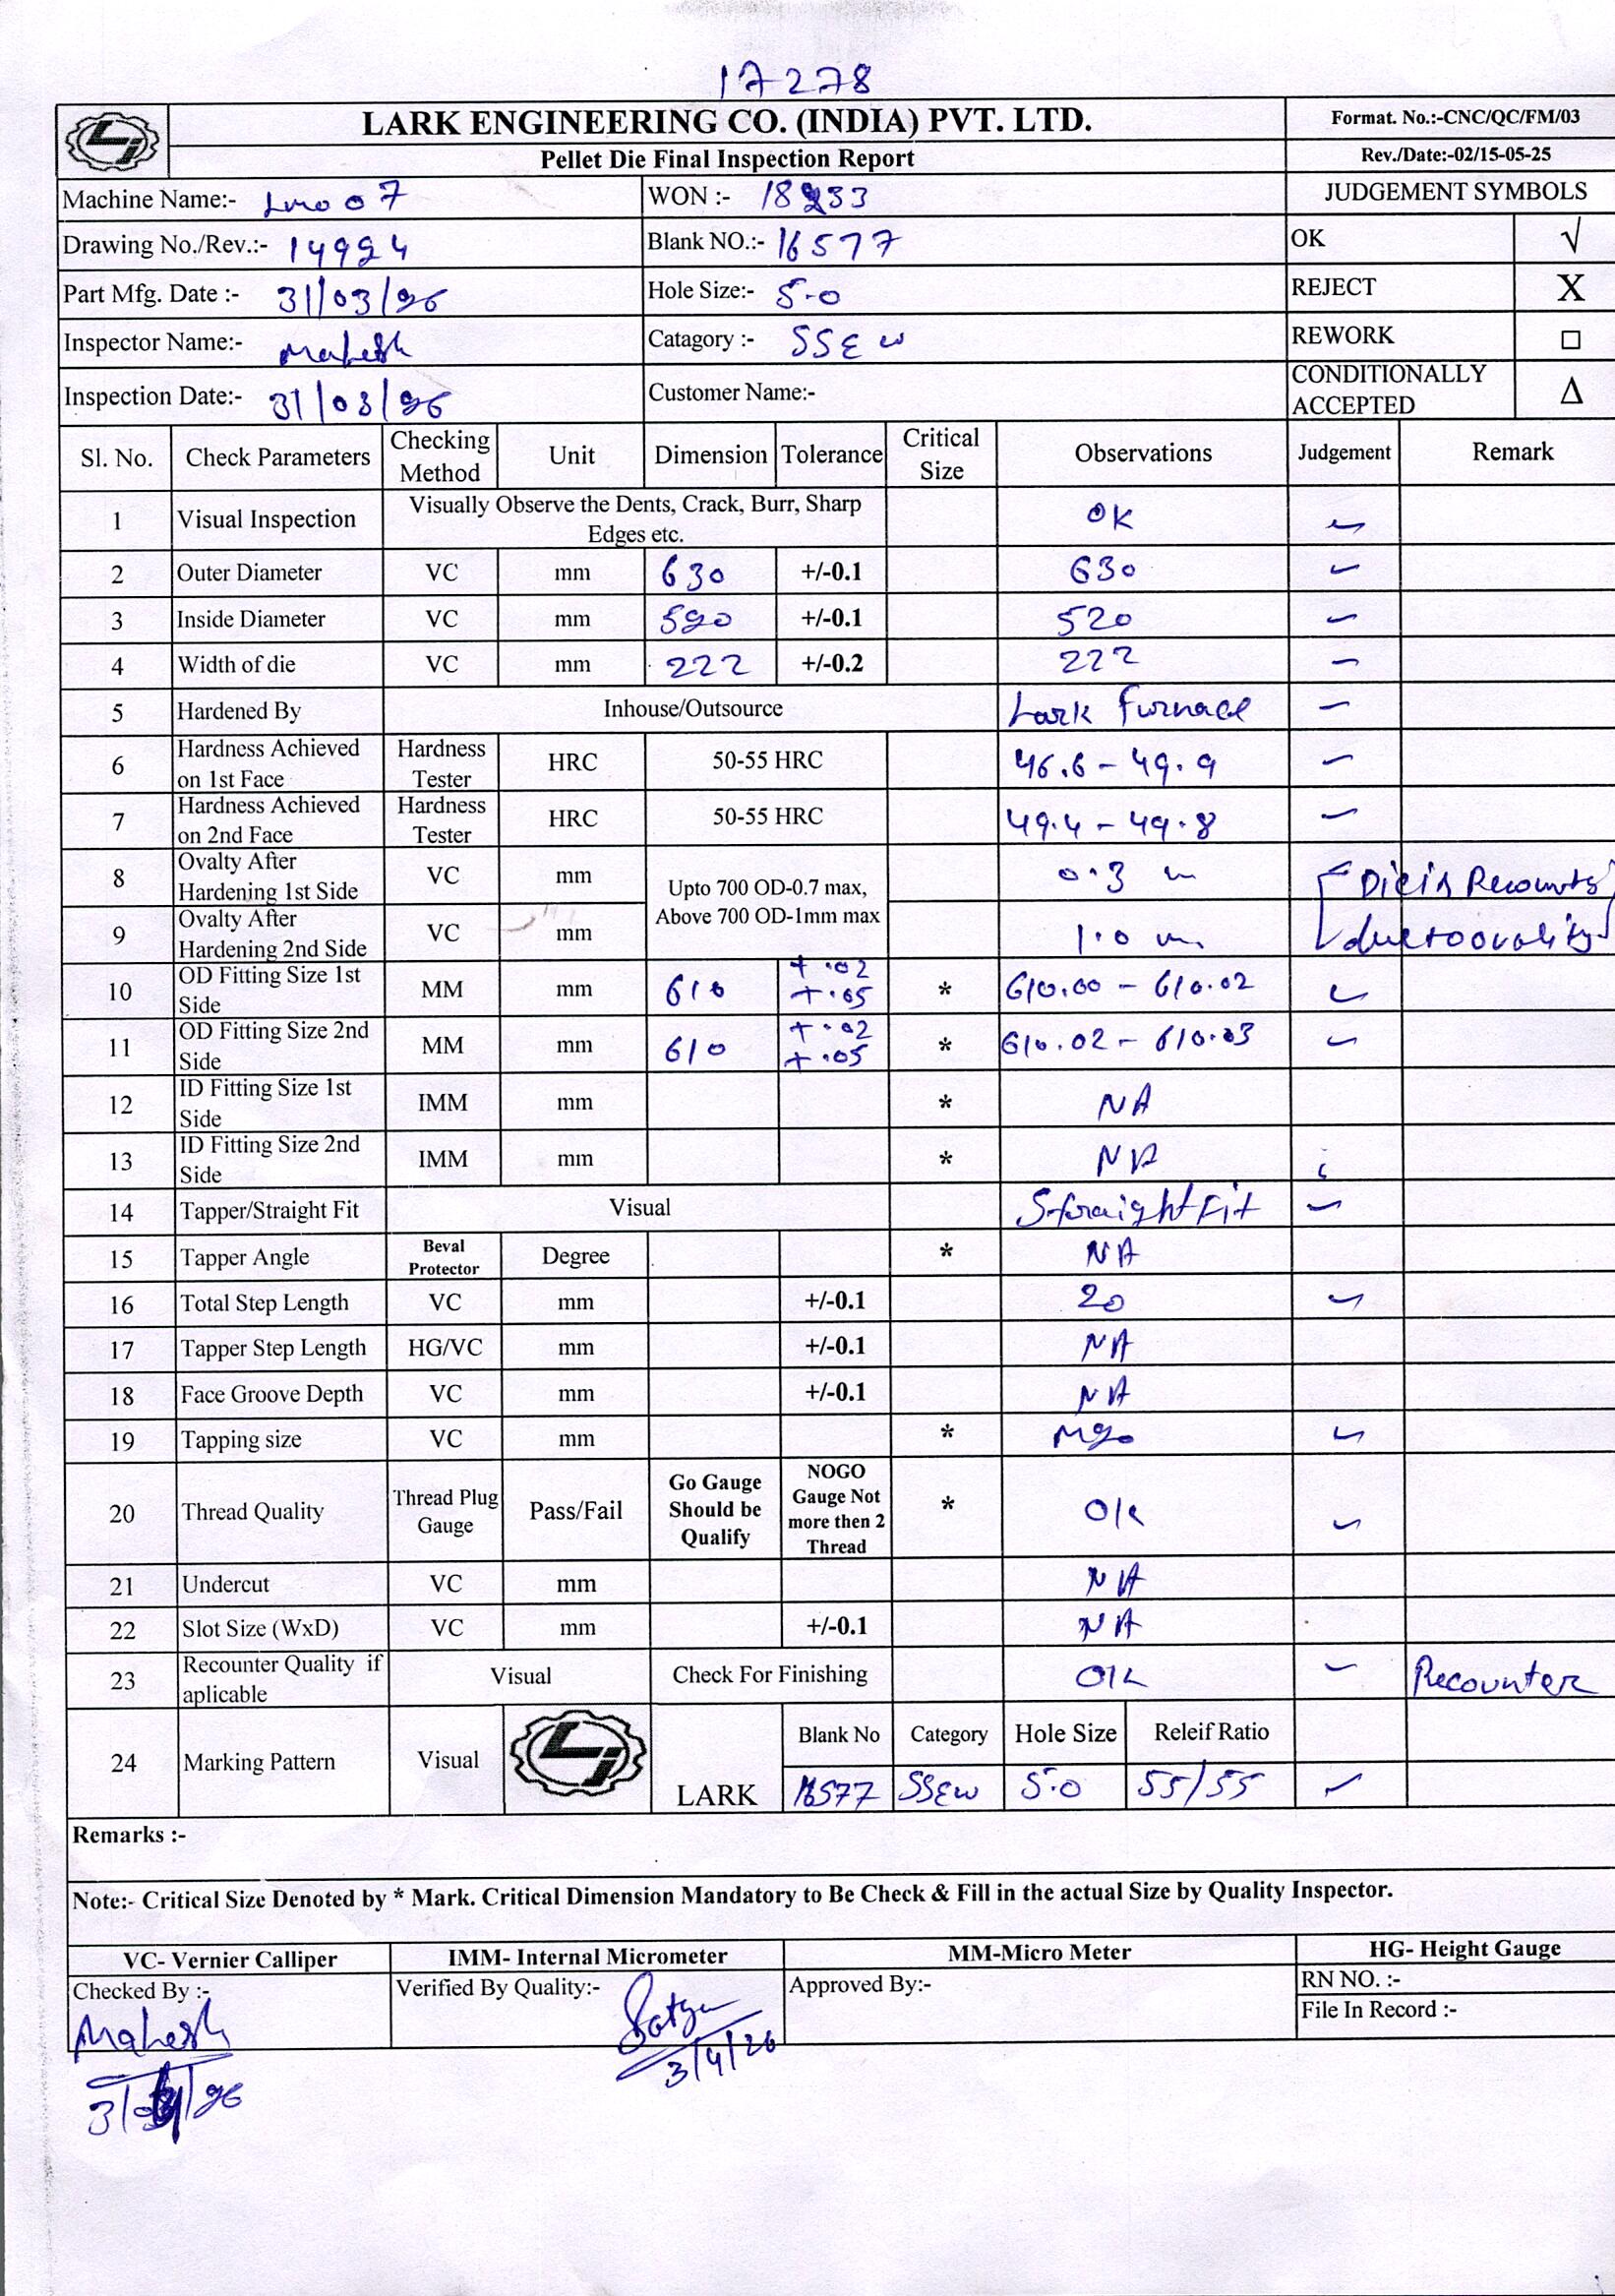 17278
LARK ENGINEERING CO. (INDIA) PVT. LTD.
Format. No.:-CNC/QC/FM/03
Pellet Die Final Inspection Report
Rev./Date:-02/15-05-25
Machine Name:- WON :- JUDGEMENT SYMBOLS
Drawing No./Rev.:- 14994 Blank NO.:- 16577 OK √
Part Mfg. Date :- 31/03/26 Hole Size:- 5.0 REJECT X
Inspector Name:- Mahesh Catagory :- SSEW REWORK □
Inspection Date:- 31/03/26 Customer Name:- CONDITIONALLY ACCEPTED Δ
Sl. No. Check Parameters Checking Method Unit Dimension Tolerance Critical Size Observations Judgement Remark
1 Visual Inspection Visually Observe the Dents, Crack, Burr, Sharp Edges etc. OK
2 Outer Diameter VC mm 630 +/-0.1 630
3 Inside Diameter VC mm 520 +/-0.1 520
4 Width of die VC mm 222 +/-0.2 222
5 Hardened By Inhouse/Outsource Lark Furnace
6 Hardness Achieved on 1st Face Hardness Tester HRC 50-55 HRC 46.6 - 49.9
7 Hardness Achieved on 2nd Face Hardness Tester HRC 50-55 HRC 49.4 - 49.8
8 Ovalty After Hardening 1st Side VC mm Upto 700 OD-0.7 max, Above 700 OD-1mm max 0.3 Die is
9 Ovalty After Hardening 2nd Side VC mm 1.0 due to ovality
10 OD Fitting Size 1st Side MM mm 610 +.02 +.05 * 610.00 - 610.02
11 OD Fitting Size 2nd Side MM mm 610 +.02 +.05 * 610.02 - 610.03
12 ID Fitting Size 1st Side IMM mm * NA
13 ID Fitting Size 2nd Side IMM mm * NA
14 Tapper/Straight Fit Visual Straight Fit
15 Tapper Angle Beval Protector Degree * NA
16 Total Step Length VC mm +/-0.1 20
17 Tapper Step Length HG/VC mm +/-0.1 NA
18 Face Groove Depth VC mm +/-0.1 NA
19 Tapping size VC mm * M20
20 Thread Quality Thread Plug Gauge Pass/Fail Go Gauge Should be Qualify NOGO Gauge Not more then 2 Thread * OK
21 Undercut VC mm NA
22 Slot Size (WxD) VC mm +/-0.1 NA
23 Recounter Quality if aplicable Visual Check For Finishing OK Recounter
24 Marking Pattern Visual LARK Blank No Category Hole Size Releif Ratio
16577 SSEW 5.0 55/55
Remarks :-
Note:- Critical Size Denoted by * Mark. Critical Dimension Mandatory to Be Check & Fill in the actual Size by Quality Inspector.
VC- Vernier Calliper IMM- Internal Micrometer MM-Micro Meter HG- Height Gauge
Checked By :- Verified By Quality:- Approved By:- RN NO. :-
File In Record :-
Mahesh
3/4/26